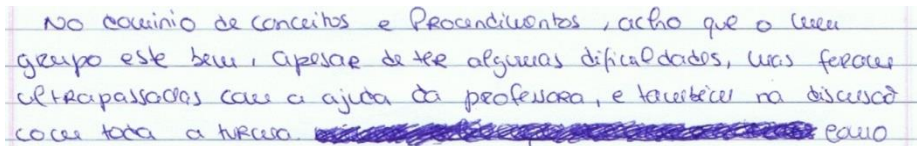 No dominio de conceitos e Procendimentos, acho que o meu
grupo este bem, apesar de ter algumas dificuldades, mas foram
ultrapassadas com a ajuda da professora, e também na discusão
com toda a turma.